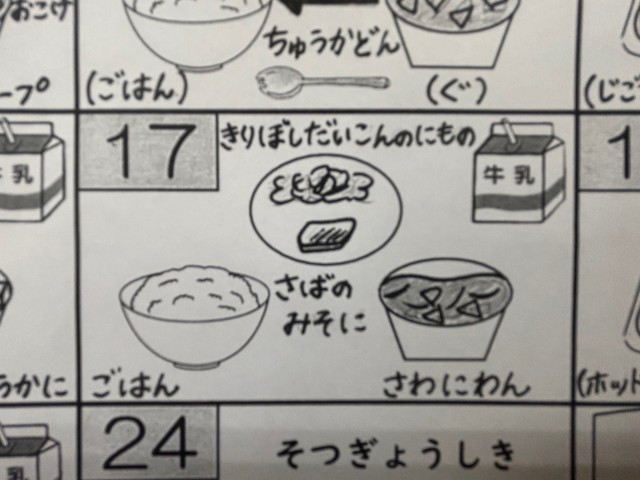 おこげ
ちゅうかどん
ープ
(ごはん)
(ぐ)
(じご
17
きりぼしだいこんのにもの
牛乳
牛乳
1
さばの
みそに
うかに
ごはん
さわにわん
(ホット
24
そつぎょうしき
乳